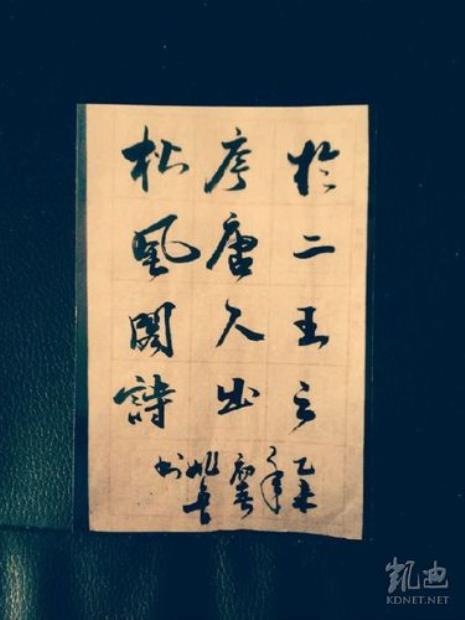 於二王之
序唐人出
松風閣詩
乙未
年
初春
书
凱迪
KDNET.NET